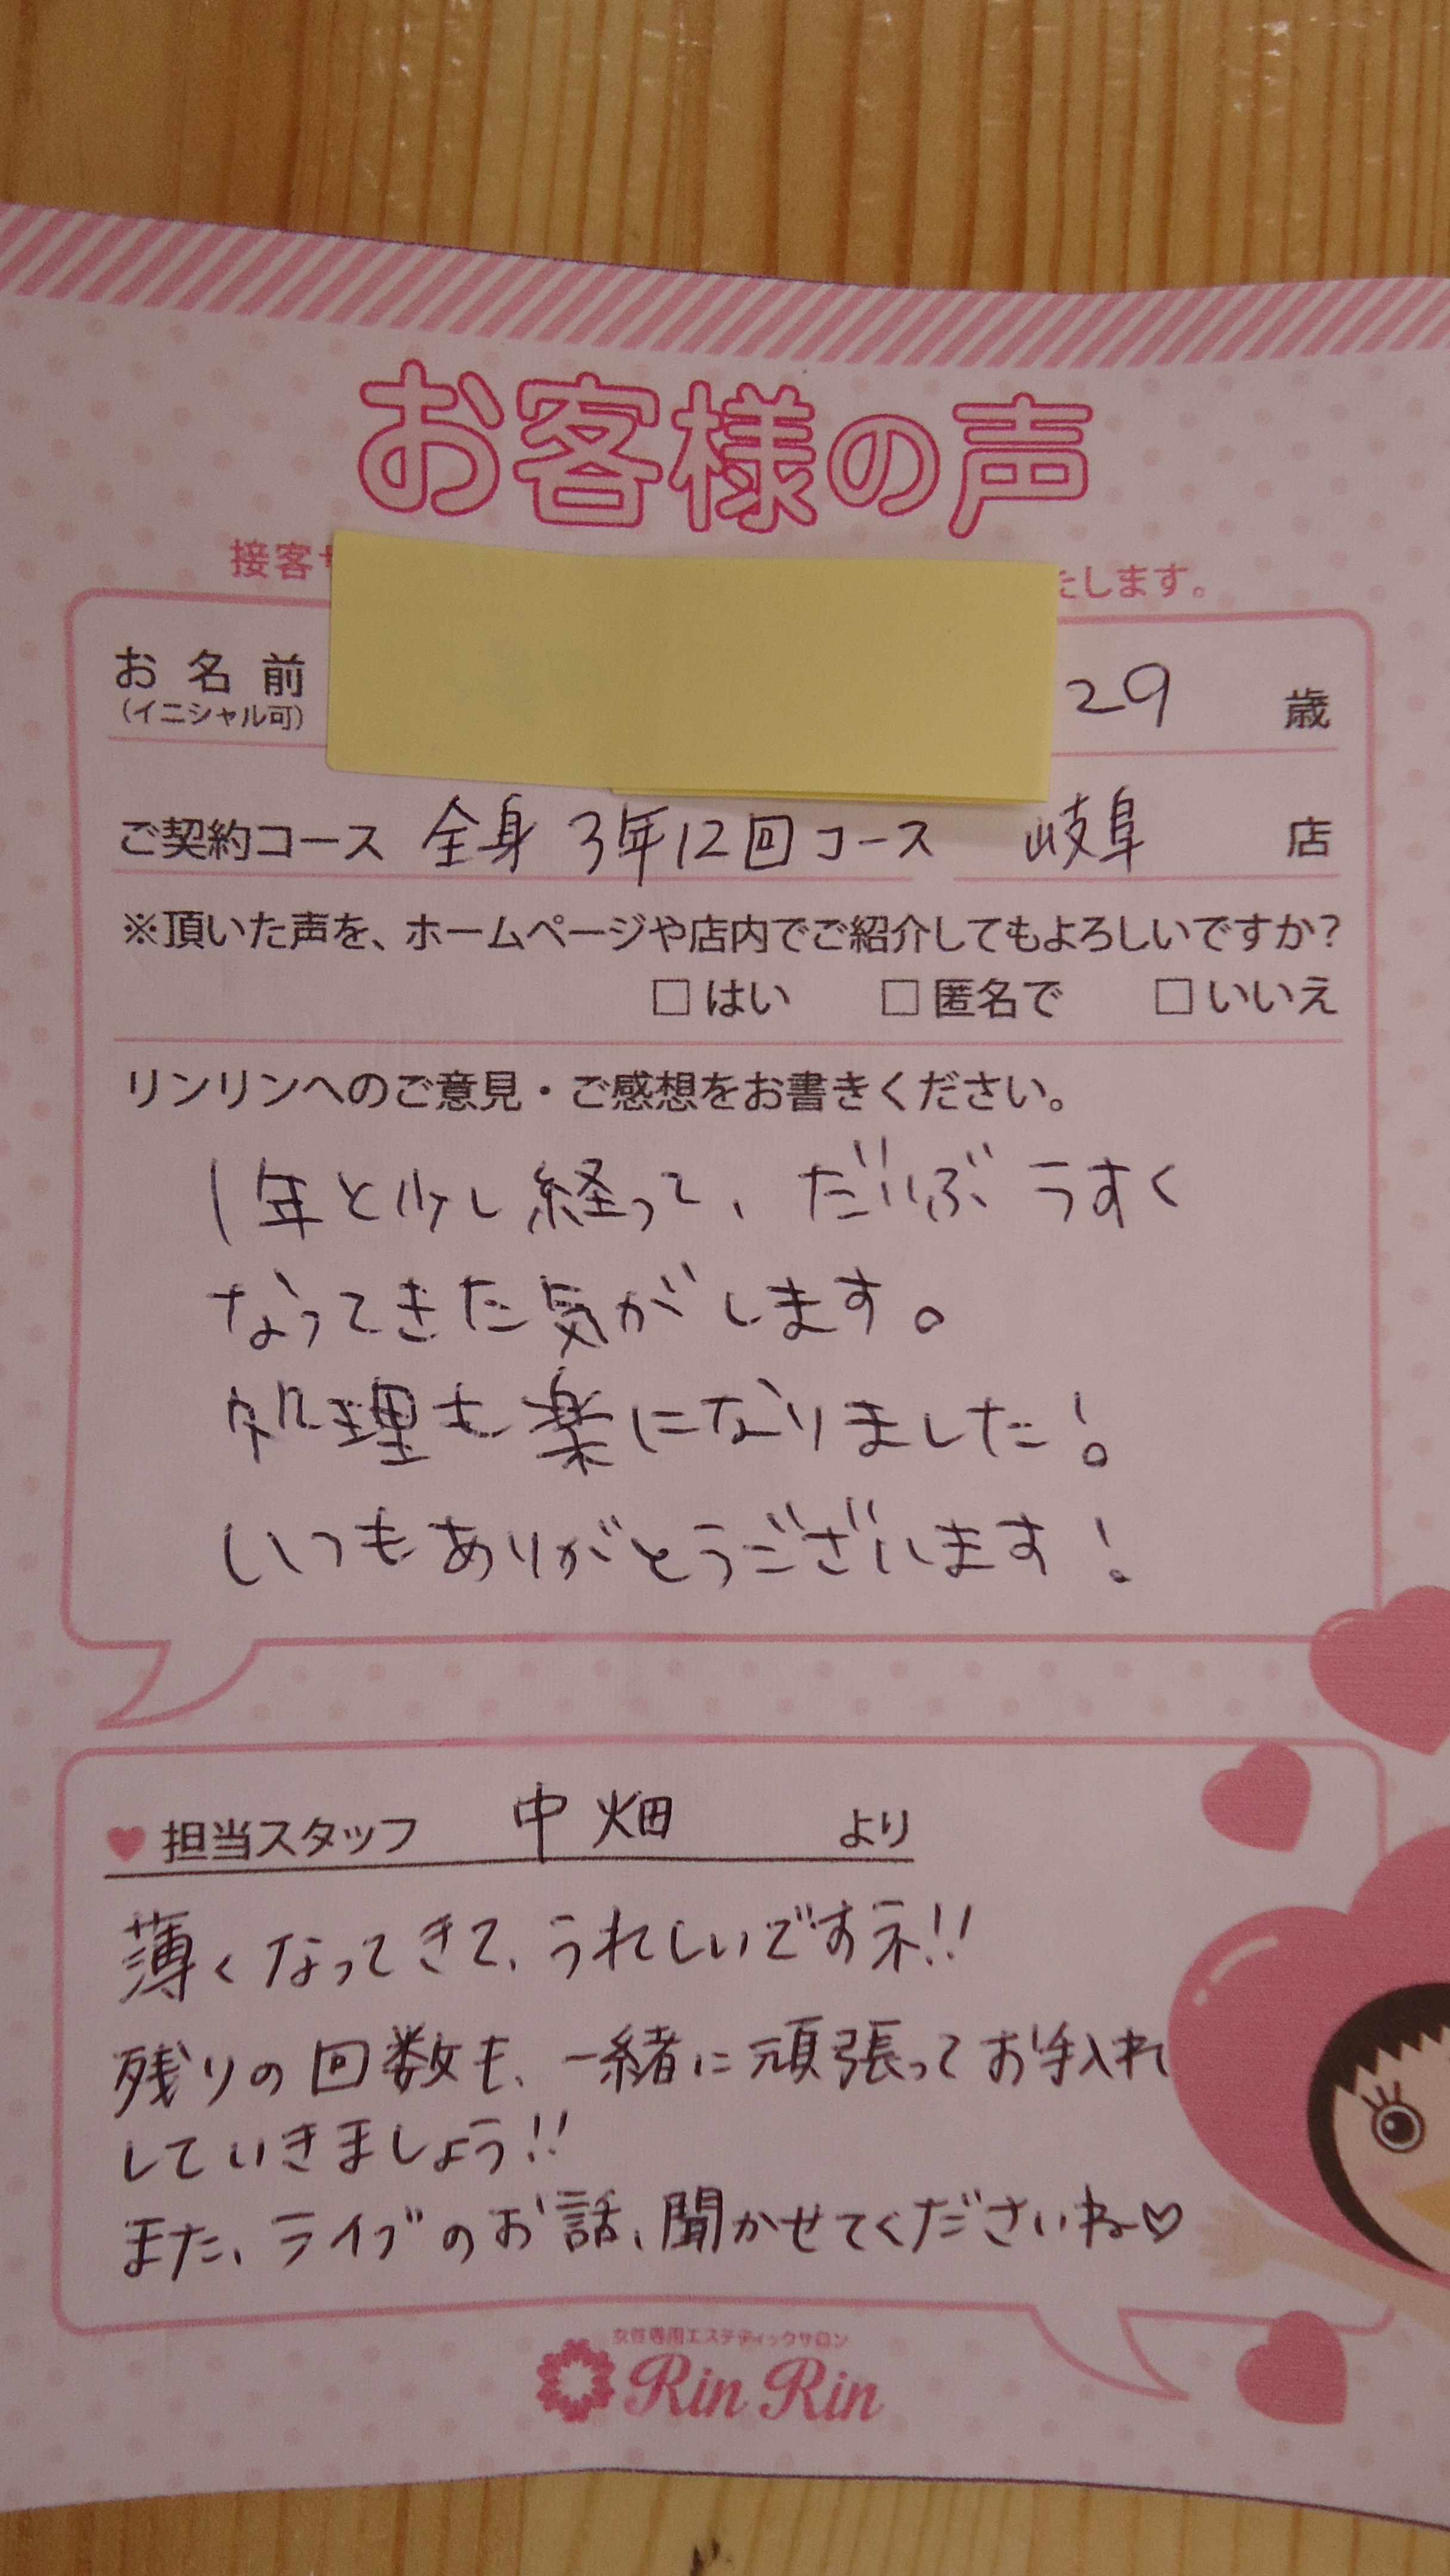 お客様の声
接客
たします。
お名前
(イニシャル可)
29 歳
ご契約コース 全身 3年12回コース 岐阜 店
※頂いた声を、ホームページや店内でご紹介してもよろしいですか?
□はい □匿名で □いいえ
リンリンへのご意見・ご感想をお書きください。
1年と少し経って、だいぶうすく
なってきた気がします。
処理も楽になりました!
いつもありがとうございます!
♥担当スタッフ 中畑 より
薄くなってきて、うれしいですネ!!
残りの回数も、一緒に頑張ってお手入れ
していきましょう!!
また、ライブのお話、聞かせてくださいね♡
女性専用エステティックサロン
Rin Rin